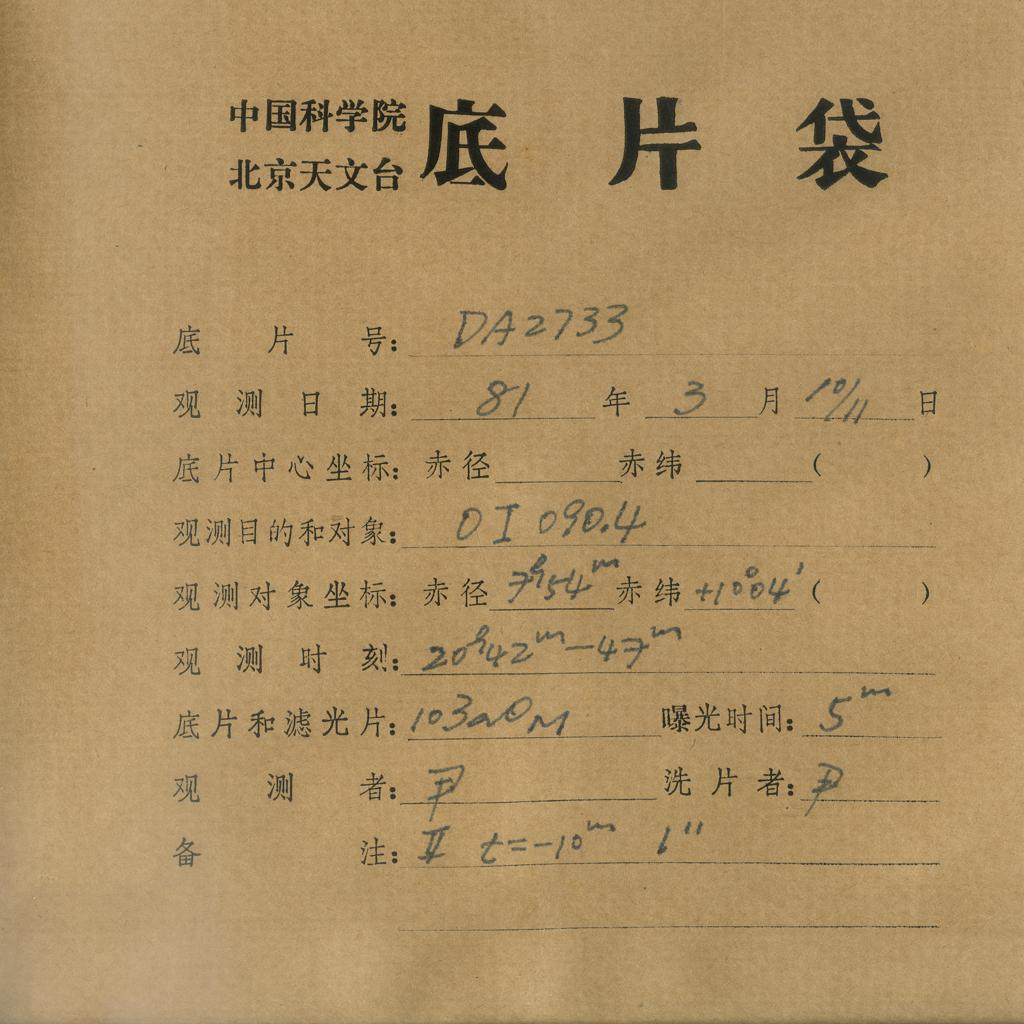 中国科学院
北京天文台
底片袋
底片号: DA2733
观测日期: 81年3月10/11日
底片中心坐标: 赤径 赤纬 ( )
观测目的和对象: OI 090.4
观测对象坐标: 赤径 7h54m 赤纬 +10°04′ ( )
观测时刻: 20h42m—47m
底片和滤光片: 103aO M 曝光时间: 5m
观测者: 尹 洗片者: 尹
备注: II t=-10m 1″